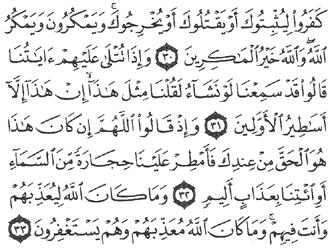 كَفَرُوا۟ لِيُثْبِتُوكَ أَوْ يَقْتُلُوكَ أَوْ يُخْرِجُوكَ ۚ وَيَمْكُرُونَ وَيَمْكُرُ
ٱللَّهُ ۖ وَٱللَّهُ خَيْرُ ٱلْمَـٰكِرِينَ ٣٠ وَإِذَا تُتْلَىٰ عَلَيْهِمْ ءَايَـٰتُنَا
قَالُوا۟ قَدْ سَمِعْنَا لَوْ نَشَآءُ لَقُلْنَا مِثْلَ هَـٰذَآ ۙ إِنْ هَـٰذَآ إِلَّآ
أَسَـٰطِيرُ ٱلْأَوَّلِينَ ٣١ وَإِذْ قَالُوا۟ ٱللَّهُمَّ إِن كَانَ هَـٰذَا
هُوَ ٱلْحَقَّ مِنْ عِندِكَ فَأَمْطِرْ عَلَيْنَا حِجَارَةً مِّنَ ٱلسَّمَآءِ
أَوِ ٱئْتِنَا بِعَذَابٍ أَلِيمٍ ٣٢ وَمَا كَانَ ٱللَّهُ لِيُعَذِّبَهُمْ
وَأَنتَ فِيهِمْ ۚ وَمَا كَانَ ٱللَّهُ مُعَذِّبَهُمْ وَهُمْ يَسْتَغْفِرُونَ ٣٣